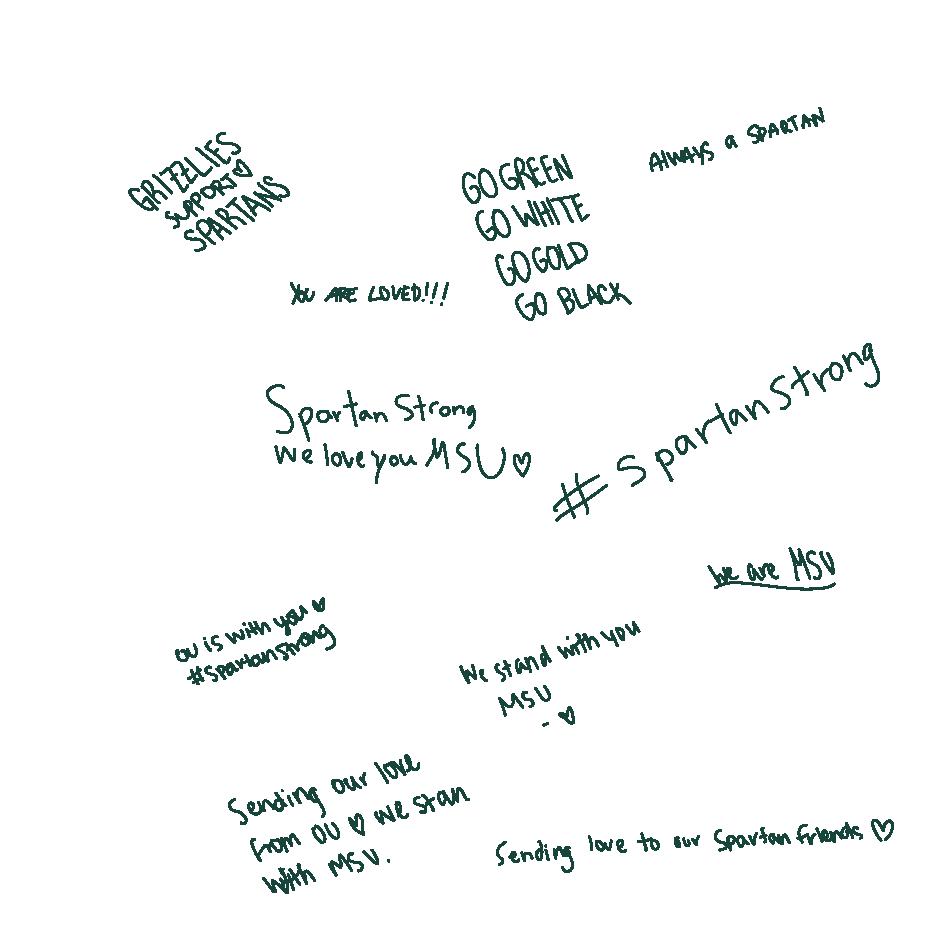 GRIZZLIES
SUPPORT♡
SPARTANS
GO GREEN
GO WHITE
GO GOLD
GO BLACK
ALWAYS a SPARTAN
YOU ARE LOVED!!!
Spartan Strong
We love you MSU♡
#SpartanStrong
We are MSU
OU is with you ♡
#SpartanStrong
We stand with you
MSU
- ♡
Sending our love
from OU ♡ we stan
with MSU.
Sending love to our Spartan friends ♡